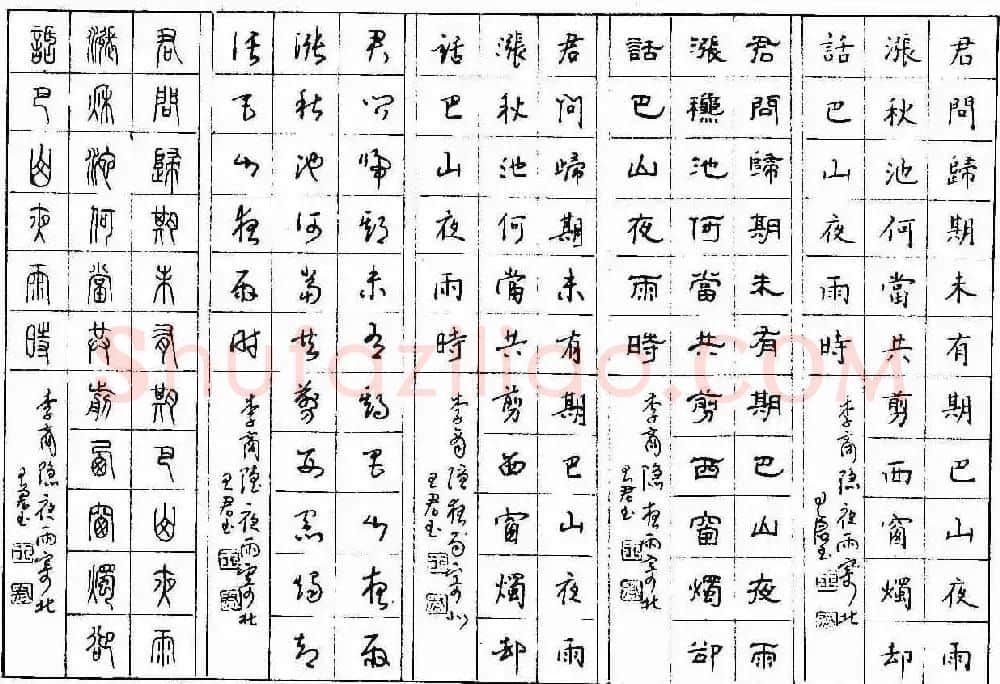 君問歸期未有期巴山夜雨
漲秋池何當共剪西窗燭却
話巴山夜雨時
李商隐夜雨寄北
君問歸期未有期巴山夜雨
漲穐池何當共剪西窗燭卻
話巴山夜雨時
李商隐夜雨寄北
君问歸期未有期巴山夜雨
漲秋池何當共剪西窗燭却
話巴山夜雨時
李商隐夜雨寄北
君问歸期未有期巴山夜雨
漲秋池何當共剪西窗燭却
話巴山夜雨時
李商隐夜雨寄北
君問歸期未有期巴山夜雨
漲秋池何當共剪西窗燭卻
話巴山夜雨時
李商隐夜雨寄北
Shufaziliao.COM